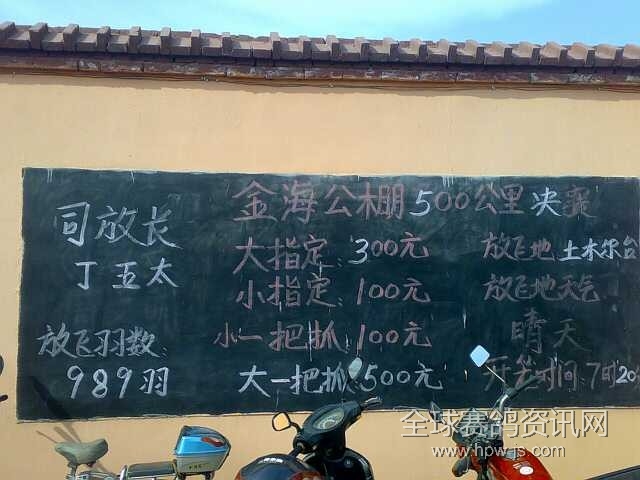 金海公棚500公里决赛
司放长
丁五太
放飞羽数
989羽
大指定:300元
小指定:100元
小一把抓:100元
大一把抓:500元
放飞地 土木尔台
放飞地天气
晴天
开笼时间:7时20
全球赛鸽资讯网
www.hpw-js.com